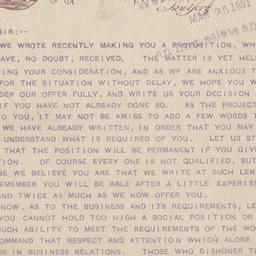 New York
MAR 25 1901
SIR:--
WE WROTE RECENTLY MAKING YOU A PROPOSITION, WH
AVE, NO DOUBT, RECEIVED. THE MATTER IS YET HEL
ING YOUR CONSIDERATION, AND AS WF ARE ANXIOUS T
FOR THE SITUATION WITHOUT DELAY, WE HOPE YOU W
DER OUR OFFER FULLY, AND WRITE US YOUR DECISION
IF YOU HAVE NOT ALREADY DONE SO. AS THE PROJECT
TO YOU, IT MAY NOT BE AMISS TO ADD A FEW WORDS T
WE HAVE ALREADY WRITTEN, IN ORDER THAT YOU MAY
UNDERSTAND WHAT IS REQUIRED OF YOU. LET US ST
THAT THE POSITION WILL BE PERMANENT IF YOU GIVE
TION. OF COURSE EVERY ONE IS NOT QUALIFIED, BUT
SE WE BELIEVE YOU ARE THAT WE WRITE AT SUCH LEN
REMEMBER YOU WILL BE ABLE AFTER A LITTLE EXPERIEN
AND TWICE AS MUCH AS WE NOW OFFER YOU.
NOW, AS TO THE BUSINESS AND ITS REQUIREMENTS, LE
YOU CANNOT HOLD TOO HIGH A SOCIAL POSITION OR
UCH ABILITY TO MEET THE REQUIREMENTS OF THE WO
COMMAND THAT RESPECT AND ATTENTION WHICH ALONE
SS IN BUSINESS RELATIONS. THOSE WHO DISHONER T